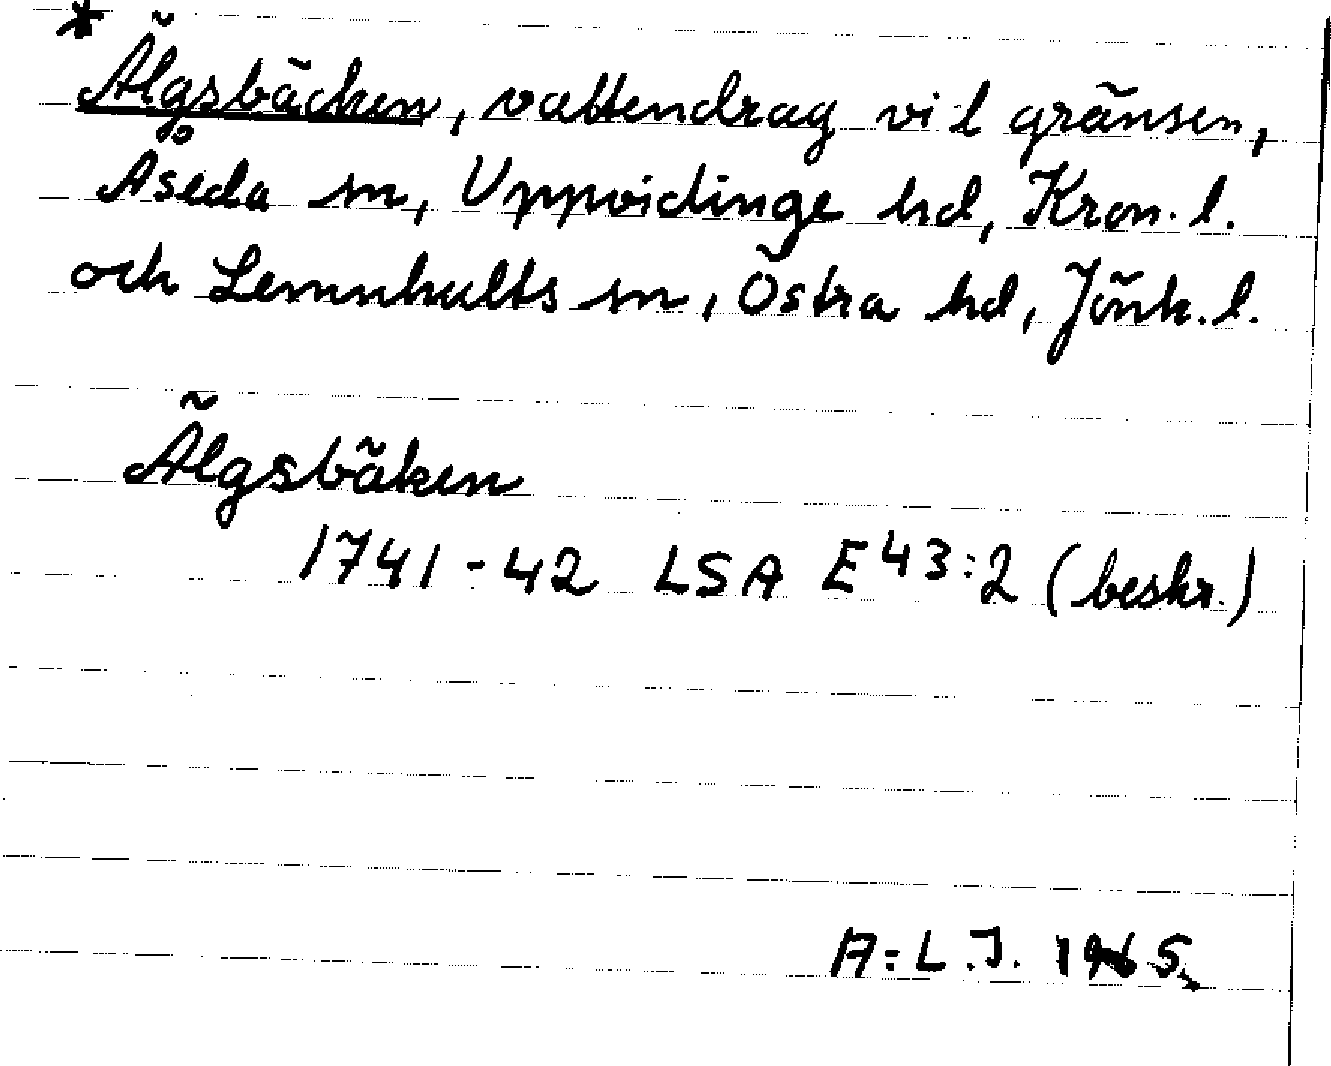 *
Älgsbäcken, vattendrag vid gränsen,
Åseda sn, Uppvidinge hd, Kron. l.
och Lemnhults sn, Östra hd, Jönk. l.
Älgsbäken
1741-42 LSA E43:2 (beskr.)
A:L.J. 1965